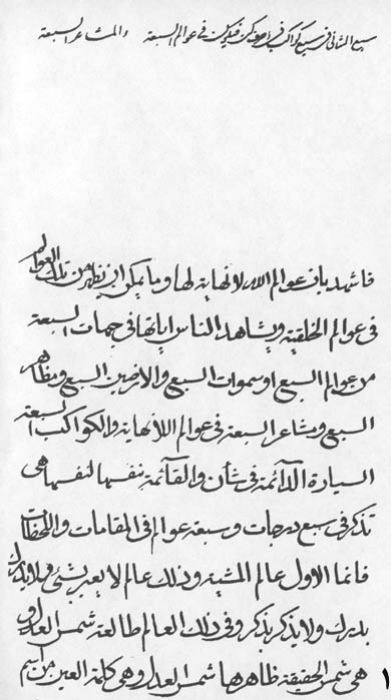 سبع المثاني في سبع كواكب في فيكون في عوالم السبعة والمشاعر السبعة
فاشهد بان عوالم الله لانهاية لها وما يمكن ان تظهر من تلك العوالم
في عوالم الخلقية ويشاهد الناس اياتها في جهات السبعة
من عوالم السبع او سموات السبع والارضين السبع ومظاهر
السبع ومشاعر السبعة في عوالم اللانهاية والكواكب السبعة
السيارة الدآئمة في شأن والقآئمة بنفسها لنفسها هي
تذكر في سبع درجات وسبعة عوالم في المقامات واللحظات
فانما الاول عالم المشية وذلك عالم لا يعبر بشئ ولا يدرك
بدرك ولا يذكر بذكر وفي ذلك العالم طالعة شمس العدل و
هي شمس الحقيقة ظاهرها شمس العدل وهي كلمة العين من اسم